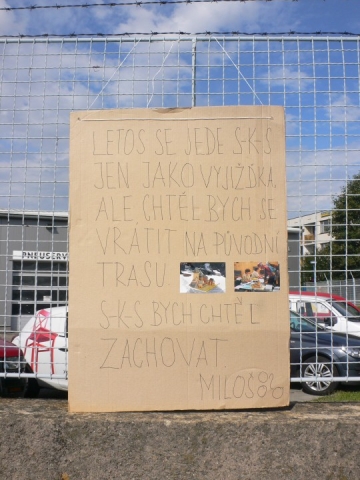 LETOS SE JEDE S-K-S
JEN JAKO VYJÍŽĎKA,
ALE CHTĚL BYCH SE
VRÁTIT NA PŮVODNÍ
TRASU
S-K-S BYCH CHTĚL
ZACHOVAT.
MILOŠ
PNEUSERV